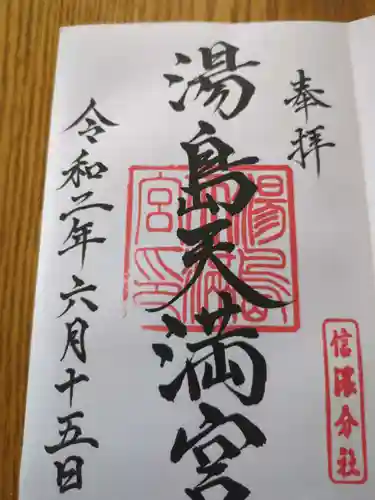 奉拝
湯島天満宮
湯島天満宮印
令和二年六月十五日